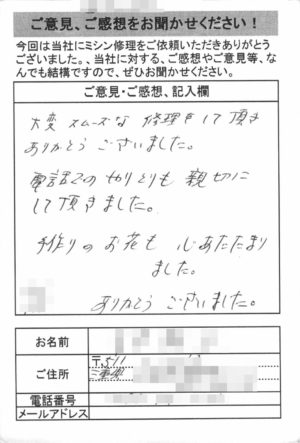 ご意見、ご感想をお聞かせください！
今回は当社にミシン修理をご依頼いただきありがとう
ございました。、当社に対する、ご感想やご意見等、な
んでも結構ですので、ぜひお聞かせください。
ご意見・ご感想、記入欄
大変 スムーズな 修理をして頂き
ありがとうございました。
電話でのやりとりも 親切に
して頂きました。
手作りのお花も 心あたたまり
ました。
ありがとうございました。
お名前
ご住所
〒511
三重県
電話番号
メールアドレス